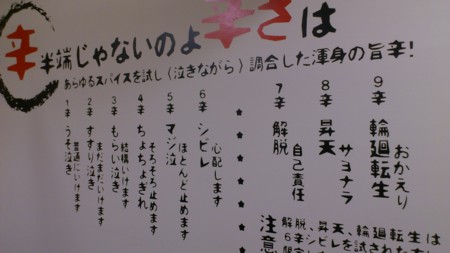 辛 半端じゃないのよ辛さは
あらゆるスパイスを試し(泣きながら)調合した渾身の旨辛!
9辛 輪廻転生 おかえり
8辛 昇天 サヨナラ
7辛 解脱 自己責任
6辛 シビレ 心配します
5辛 マジ泣 ほとんど止めます
4辛 ちょちょぎれ そろそろ止めます
3辛 もらい泣き 結構いけます
2辛 すすり泣き まだまだいけます
1辛 うそ泣き 普通にいけます
注意